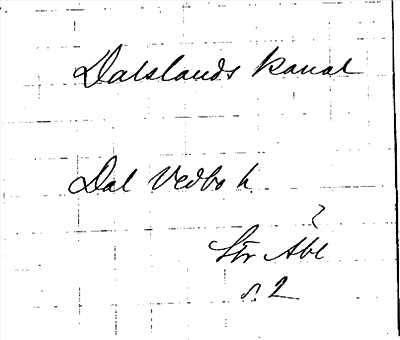 Dalslands kanal
Dal Vedbo h
?
Str Abl
s. 2